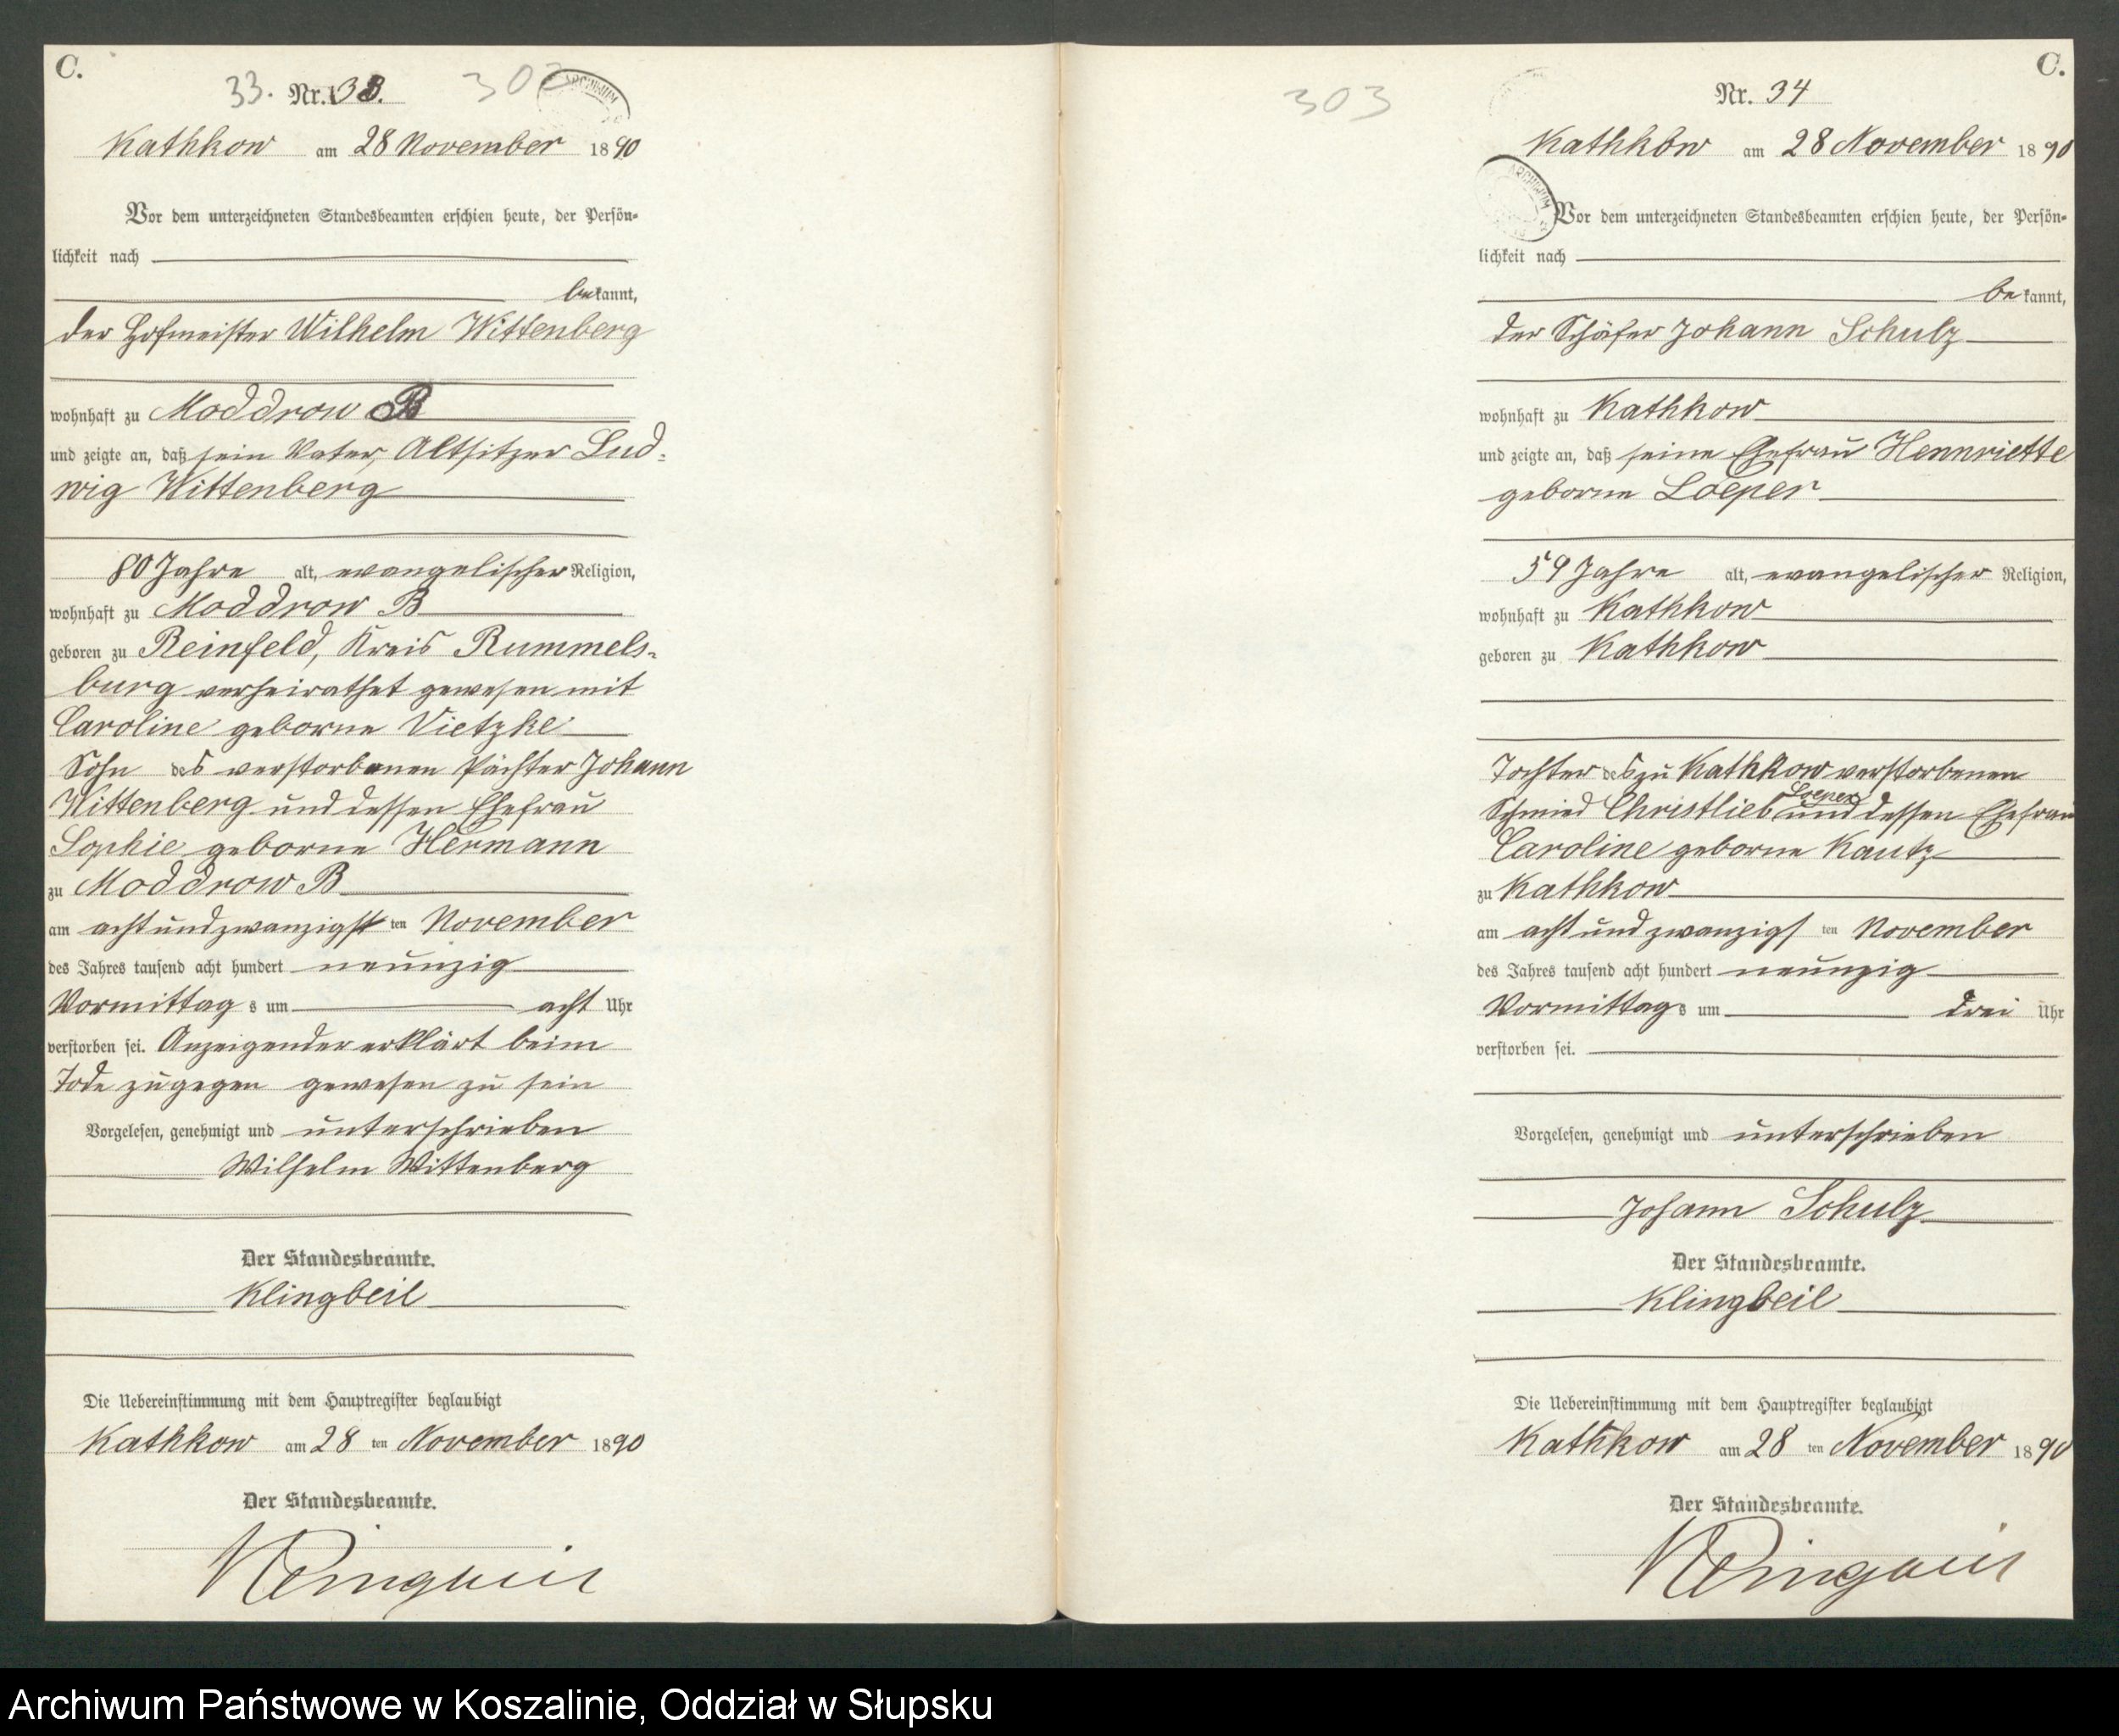 C.
33. Nr. 33. 302
ARCHIWUM
Kathkow am 28 November 1890
Vor dem unterzeichneten Standesbeamten erschien heute, der Persön-
lichkeit nach
bekannt,
der Hofmeister Wilhelm Wittenberg
wohnhaft zu Moddrow B
und zeigte an, daß sein Vater, Altsitzer Lud-
wig Wittenberg
80 Jahre alt, evangelischer Religion,
wohnhaft zu Moddrow B
geboren zu Reinfeld, Kreis Rummels-
burg verheirathet gewesen mit
Caroline geborne Vietzke
Sohn des verstorbenen Pächter Johann
Wittenberg und dessen Ehefrau
Sophie geborne Hermann
zu Moddrow B
am acht und zwanzigst ten November
des Jahres tausend acht hundert neunzig
Vormittags um acht Uhr
verstorben sei. Anzeigender erklärt beim
Tode zugegen gewesen zu sein
Vorgelesen, genehmigt und unterschrieben
Wilhelm Wittenberg
Der Standesbeamte.
Klingbeil
Die Uebereinstimmung mit dem Hauptregister beglaubigt
Kathkow am 28 ten November 1890
Der Standesbeamte.
C.
303
Nr. 34
Kathkow am 28 November 1890
ARCHIWUM
Vor dem unterzeichneten Standesbeamten erschien heute, der Persön-
lichkeit nach
bekannt,
der Schäfer Johann Schulz
wohnhaft zu Kathkow
und zeigte an, daß seine Ehefrau Hennriette
geborne Loeper
59 Jahre alt, evangelischer Religion,
wohnhaft zu Kathkow
geboren zu Kathkow
Tochter des zu Kathkow verstorbenen
Schmied Christlieb Loeper und dessen Ehefrau
Caroline geborne Kautz
zu Kathkow
am acht und zwanzigs ten November
des Jahres tausend acht hundert neunzig
Vormittags um drei Uhr
verstorben sei.
Vorgelesen, genehmigt und unterschrieben
Johann Schulz
Der Standesbeamte.
Klingbeil
Die Uebereinstimmung mit dem Hauptregister beglaubigt
Kathkow am 28 ten November 1890
Der Standesbeamte.
Archiwum Państwowe w Koszalinie, Oddział w Słupsku